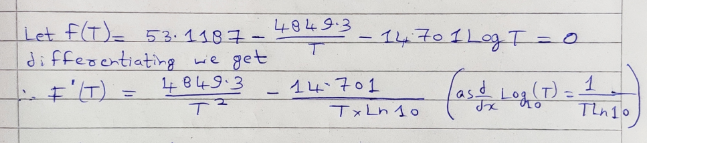 Let F(T) = 53.1187 - 4849.3/T - 14.701 Log T = 0
differentiating we get
∴ F'(T) = 4849.3/T² - 14.701/T×Ln 10 (as d/dx Log₁₀(T) = 1/Tln10)